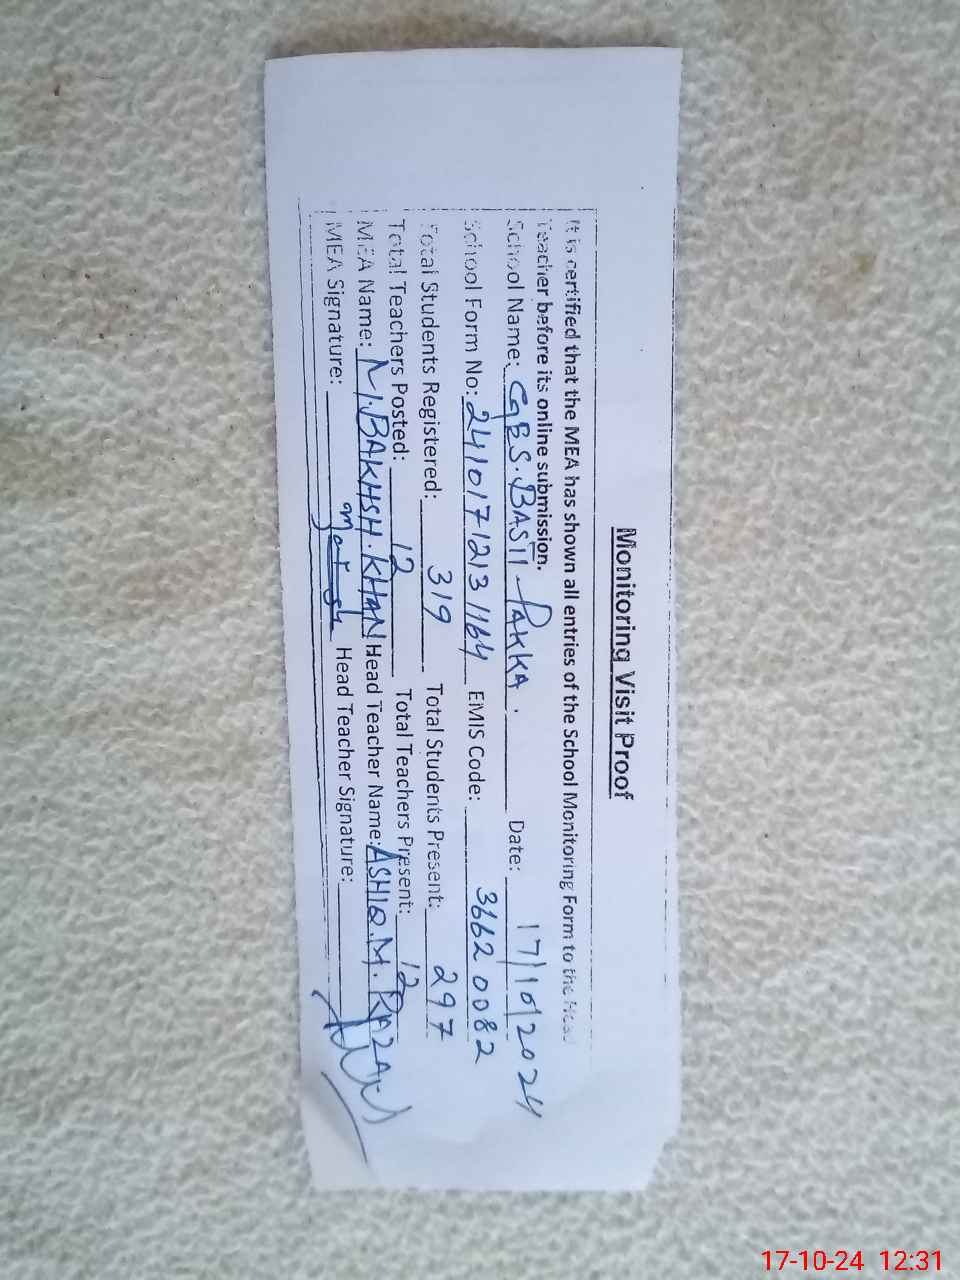 Monitoring Visit Proof
It is certified that the MEA has shown all entries of the School Monitoring Form to the Head
Teacher before its online submission.
School Name: GES. BASTI PAKKA. Date: 17/10/2024
School Form No: 2410171213 1164 EMIS Code: 36620082
Total Students Registered: 319 Total Students Present: 297
Total Teachers Posted: 12 Total Teachers Present: 12
MEA Name: M.BAKHSH.KHAN Head Teacher Name: ASHIQ.M.
MEA Signature: Head Teacher Signature:
17-10-24 12:31